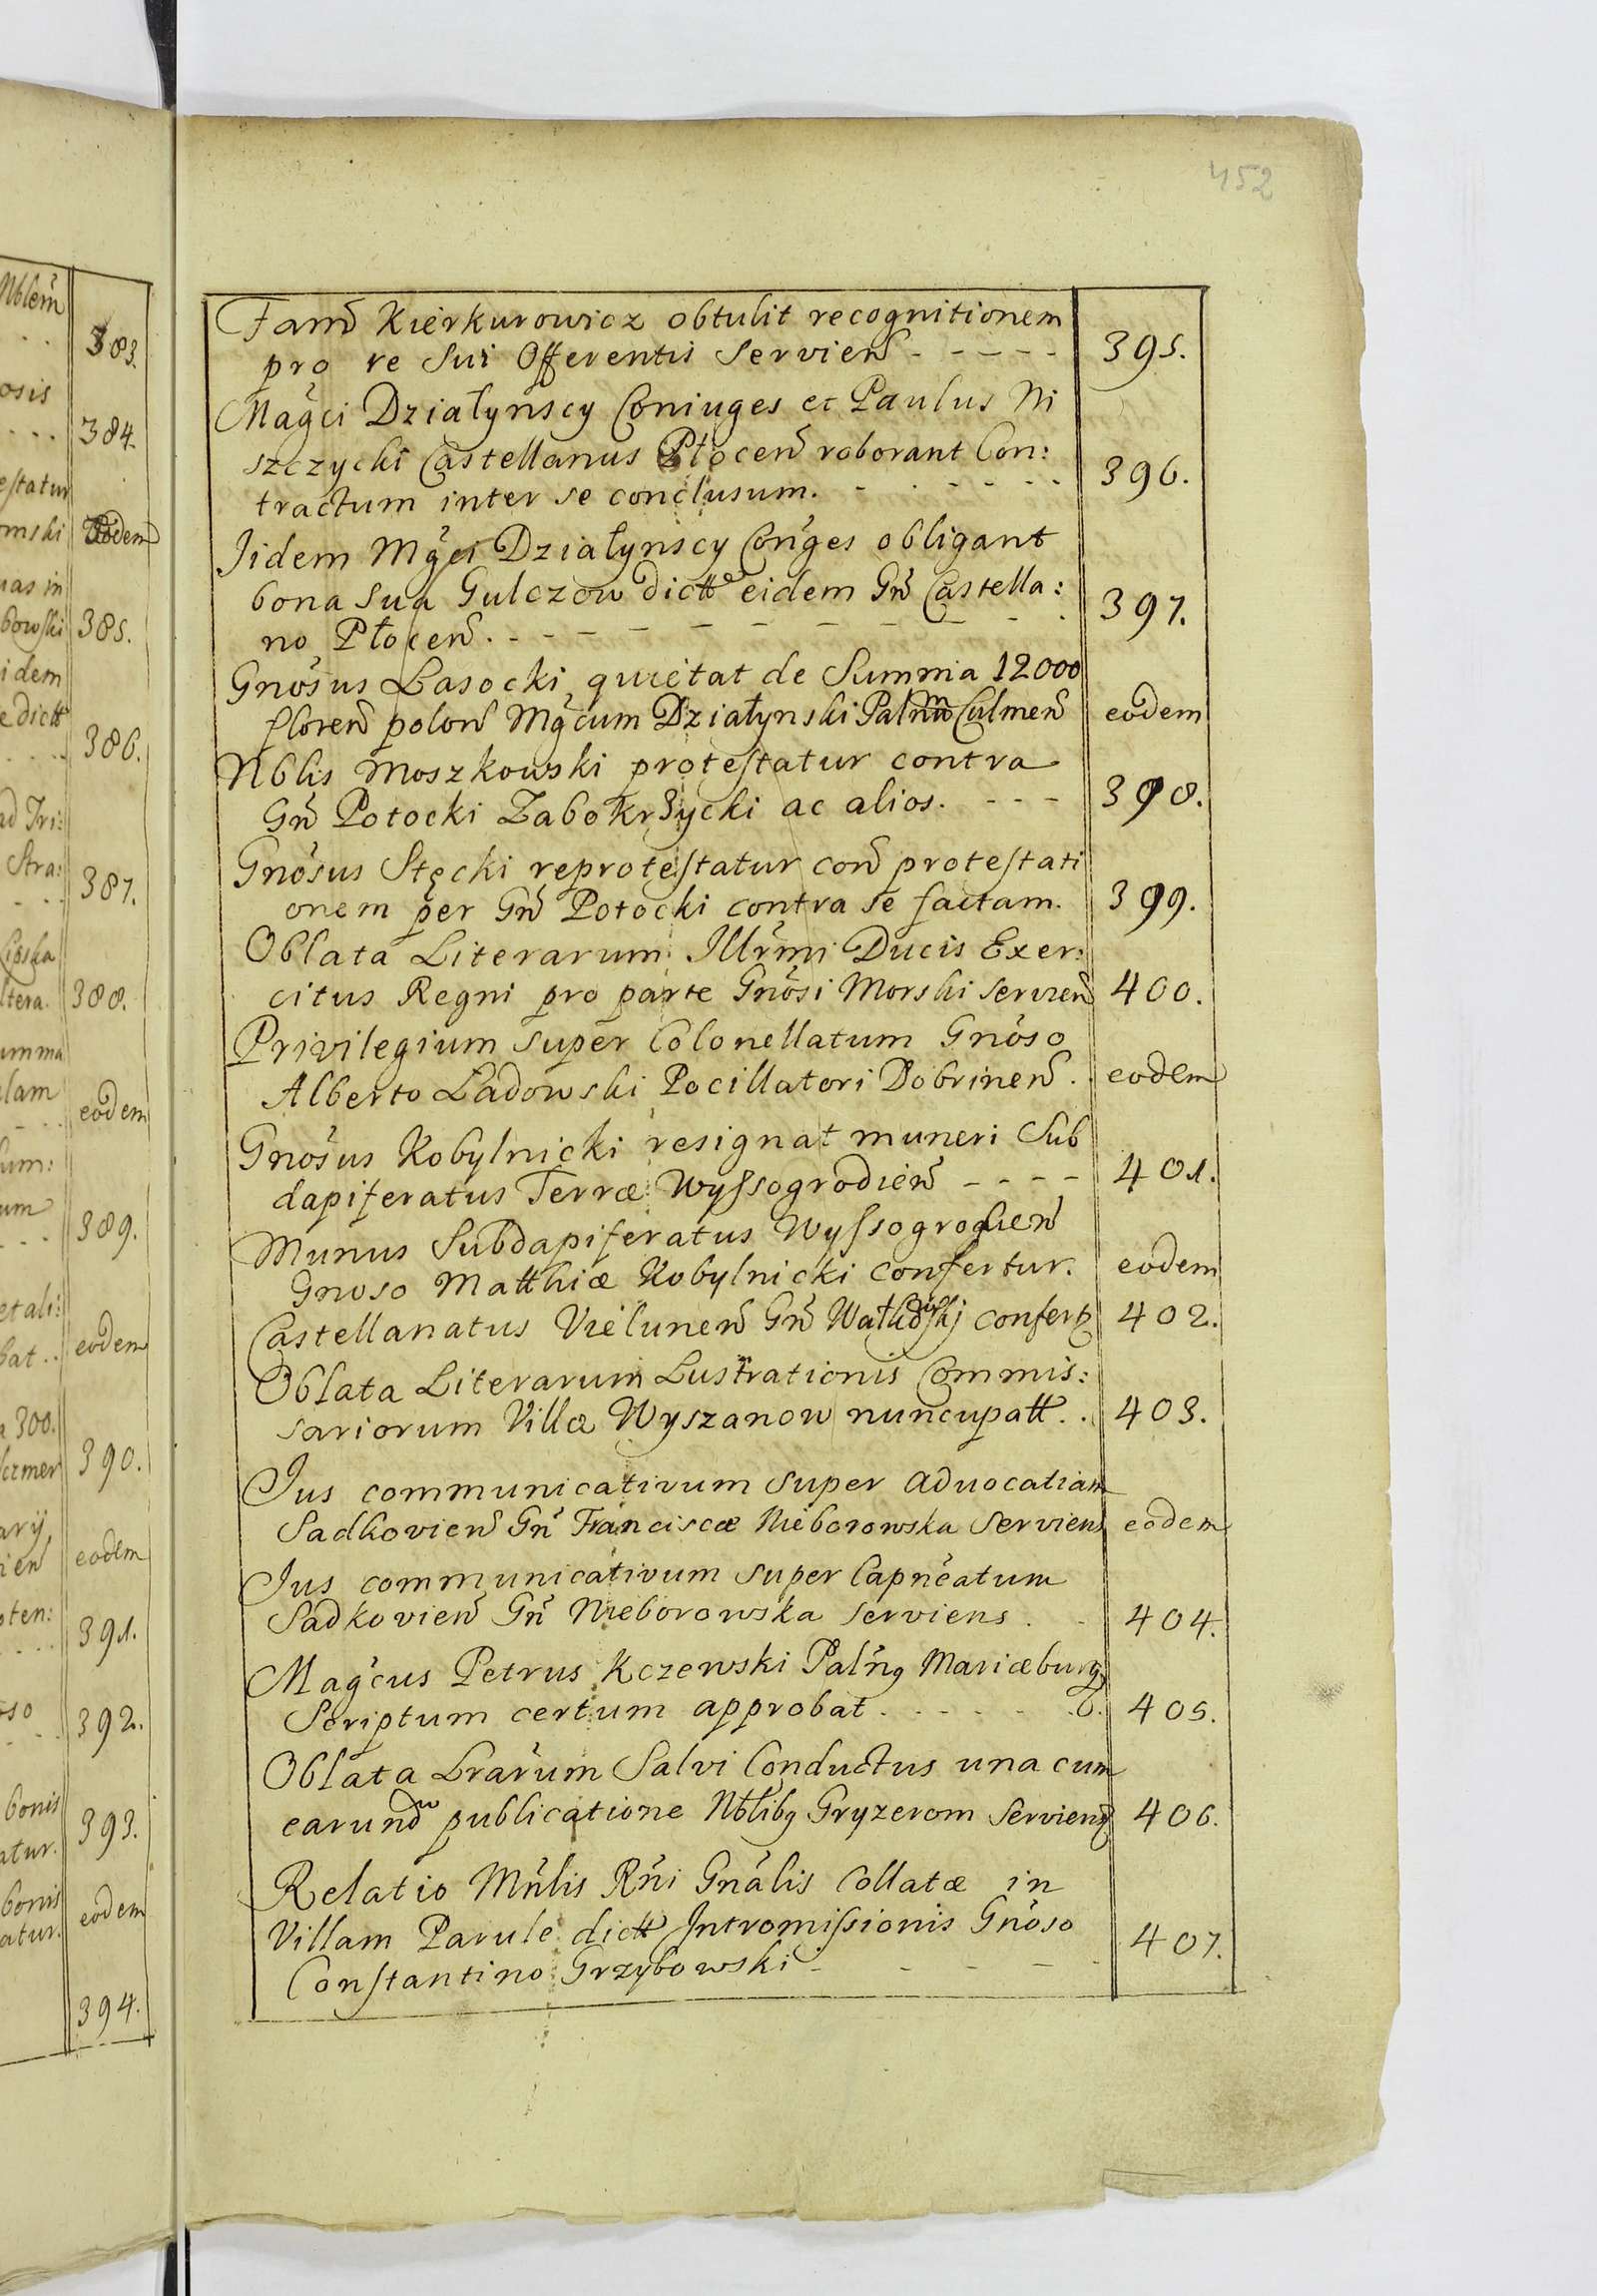 Nblem
383.
osis
384.
estatur
omski
eodem
uas in
bowski
385.
idem
e dictt
386.
ad Tri:
Stra:
387.
Lipska
ltera.
388.
umma
lam
eodem
um:
um
389.
et ali:
bat..
eodem
a 300.
390.
arij
ien
eodem
oten:
391.
oso
392.
bonis
atur.
393.
bonis
atur.
eodem
394.
452
Famd Kierkurowicz obtulit recognitionem
pro re sui Offerentis servien̄ - - - - - 395.
Magci Działynscy Coniuges et Paulus Ni
szczycki Castellanus Płocen̄ roborant Con:
tractum inter se conclusum. - - - - - - 396.
Iidem Mgci Działynscy Conges obligant
bona sua Gulczow dictt eidem Gn̄ Castella:
no Płocen̄. - - - - - - - - - - 397.
Gnosus Lasocki quietat de Summa 12000
floren̄ polon̄ Mgcum Działynski Palnum Culmen̄ eodem
Nblis Moszkowski protestatur contra
Gn̄ Potocki Zabokrzycki ac alios. - - - 398.
Gnosus Stęcki reprotestatur con̄ protestati
onem per Gn̄ Potocki contra se factam. 399.
Oblata Literarum Illrmi Ducis Exer:
citus Regni pro parte Gnosi Morski servien̄ 400.
Privilegium super Colonellatum Gnoso
Alberto Ladowski Pocillatori Dobrinen̄. eodem
Gnosus Kobylnicki resignat muneri Sub
dapiferatus Terræ Wyssogrodien̄ - - - - 401.
Munus Subdapiferatus Wyssogrodien̄
Gnoso Matthiæ Kobylnicki confertur. eodem
Castellanatus Vielunen̄ Gn̄ confertr 402.
Oblata Literarum Lustrationis Commis:
sariorum Villæ Wyszanow nuncupatt.. 403.
Ius communicativum super advocatiam
Sadkovien̄ Gn̄ Franciscæ Nieborowska serviens eodem
Ius communicativum super Capneatum
Sadkovien̄ Gn̄ Nieborowska serviens. - 404.
Magcus Petrus Kczewski Palnq Mariæburg
Scriptum certum approbat. - - - - - 405.
Oblata Lrarum Salvi Conductus una cum
earundu publicatione Nblibq Gryzerom servienq 406.
Relatio Mnlis Rni Gnalis collatæ in
Villam Parule dictt Intromissionis Gnoso
Constantino Grzybowski - - - - - 407.